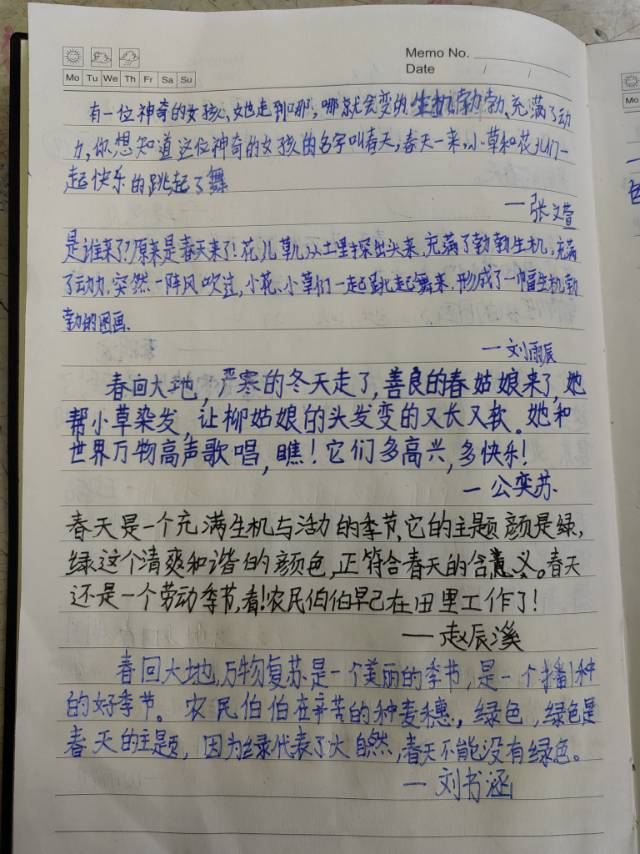 Memo No.
Mo Tu We Th Fr Sa Su
Date / /
有一位神奇的女孩,她走到哪,哪就会变的生机勃勃,充满了动
力,你想知道这位神奇的女孩的名字叫春天,春天一来,小草和花儿们一
起快乐的跳起了舞
—张文萱
是谁来了?原来是春天来了!花儿草儿从土里探出头来,充满了勃勃生机,充满
了动力.突然一阵风吹过,小花、小草们一起跳起舞来,形成了一幅生机勃
勃的图画.
—刘雨辰
春回大地,严寒的冬天走了,善良的春姑娘来了,她
帮小草染发,让柳姑娘的头发变的又长又软。她和
世界万物高声歌唱,瞧!它们多高兴,多快乐!
—公奕苏.
春天是一个充满生机与活力的季节,它的主题颜是绿,
绿这个清爽和谐的颜色,正符合春天的含意义。春天
还是一个劳动季节,看!农民伯伯早已在田里工作了!
—赵辰溪
春回大地,万物复苏是一个美丽的季节,是一个播种
的好季节。农民伯伯在辛苦的种麦穗,绿色,绿色是
春天的主题,因为绿代表了大自然,春天不能没有绿色。
—刘书涵
Mo